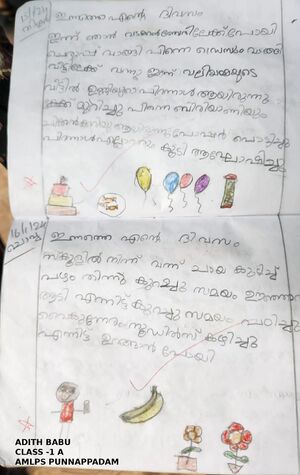 ഇന്നത്തെ എന്റെ ദിവസം
ഇന്ന് ഞാൻ വടക്കഞ്ചേരിയിലേക്ക് പോയി
ചെരുപ്പ് വാങ്ങി പിന്നെ ഡ്രസും വാങ്ങി
വീട്ടിലേക്ക് വന്നു ഇന്ന് വലിയമ്മയുടെ
വീട്ടിൽ ഉണ്ണിയുടെ പിറന്നാൾ ആയിരുന്നു
കേക്ക് മുറിച്ചു പിന്നെ ബിരിയാണിയും
ആയിരുന്നു പൊട്ടിച്ചു
പിറന്നാൾ എല്ലാവരും കൂടി ആഘോഷിച്ചു
16/1/24
ചൊവ്വ
ഇന്നത്തെ എന്റെ ദിവസം
സ്കൂളിൽ നിന്ന് വന്ന് ചായ കുടിച്ച്
പഴം തിന്നു കുറച്ചു സമയം ഊഞ്ഞാൽ
ആടി എന്നിട്ട് കുറച്ചു സമയം പഠിച്ചു
വൈകുന്നേരം നൂഡിൽസ് കഴിച്ചു
എന്നിട്ട് ഉറങ്ങാൻ പോയി
ADITH BABU
CLASS -1 A
AMLPS PUNNAPPADAM